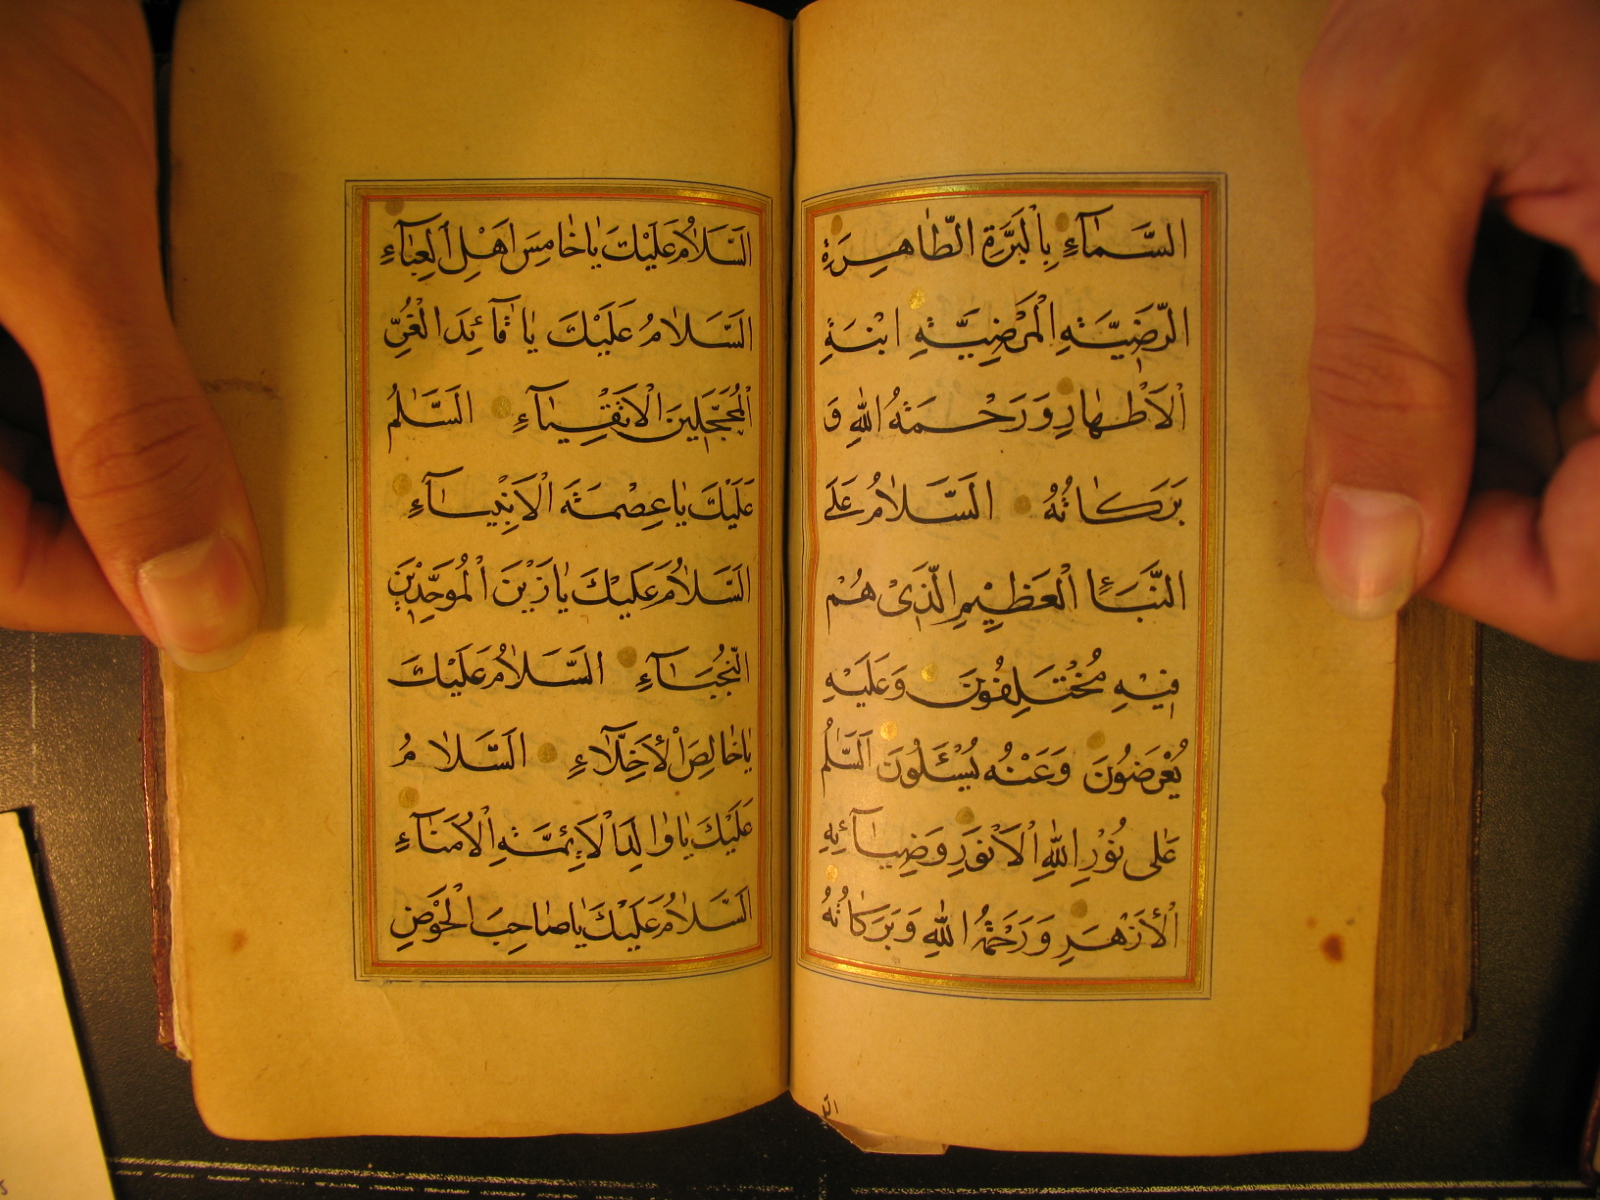 السَّمَآءِ بِالْبَرَّةِ الطَّاهِرَةِ
الرَّضِيَّةِ الْمَرْضِيَّةِ ابْنَةِ
الْاَطْهَارِ وَرَحْمَةُ اللهِ وَ
بَرَكَاتُهُ السَّلَامُ عَلَى
النَّبَاءِ الْعَظِيْمِ الَّذِىْ هُمْ
فِيْهِ مُخْتَلِفُوْنَ وَعَلَيْهِ
يُعْرَضُوْنَ وَعَنْهُ يُسْئَلُوْنَ اَلسَّلٰمُ
عَلٰى نُوْرِ اللهِ الْاَنْوَرِ وَضِيَآئِهِ
الْاَزْهَرِ وَرَحْمَةُ اللهِ وَبَرَكَاتُهُ
الس
اَلسَّلَامُ عَلَيْكَ يَاخَامِسَ اَهْلِ الْعِبَآءِ
اَلسَّلَامُ عَلَيْكَ يَا قَآئِدَ الْغُرِّ
الْمُحَجَّلِيْنَ الْاَتْقِيَآءِ اَلسَّلٰمُ
عَلَيْكَ يَاعِصْمَةَ الْاَنْبِيَآءِ
اَلسَّلَامُ عَلَيْكَ يَازَيْنَ الْمُوَحِّدِيْنَ
النُّجَبَآءِ اَلسَّلَامُ عَلَيْكَ
يَاخَالِصَ الْاَخِلَّآءِ اَلسَّلَامُ
عَلَيْكَ يَاوَالِدَ الْاَئِمَّةِ الْاُمَنَآءِ
اَلسَّلَامُ عَلَيْكَ يَاصَاحِبَ الْحَوْضِ